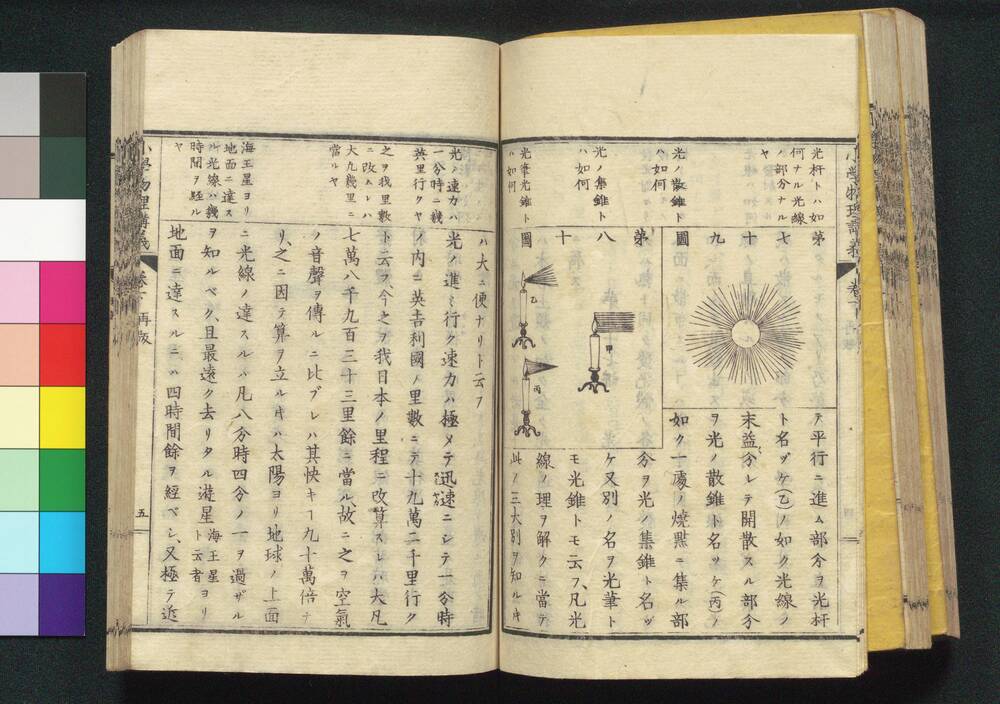 小學物理講義
卷下
再版
光杆トハ如
何ナル光線
ノ部分ナル
ヤ
光ノ散錐ト
ハ如何
光ノ集錐ト
ハ如何
光筆光錐ト
ハ如何
第
七
十
九
圖
第
八
十
圖
甲
乙
丙
テ平行ニ進ム部分ヲ光杆
ト名ヅケ(乙)ノ如ク光線ノ
末益分レテ開散スル部分
ヲ光ノ散錐ト名ツケ(丙)ノ
如ク一處ノ燒㸃ニ集ル部
分ヲ光ノ集錐ト名ヅ
ケ又別ノ名ヲ光筆ト
モ光錐トモ云フ、凡光
線ノ理ヲ解クニ當テ
此ノ三大別ヲ知ルキ
光ノ速力ハ
一分時ニ幾
英里行クヤ
之ヲ我里數
ニ改ムレハ
大凡幾里ニ
當ルヤ
海王星ヨリ
地面ニ達ス
ル光線ハ幾
時間ヲ經ル
ヤ
ハ大ニ便ナリト云フ
光ノ進ミ行ク速力ハ極メテ迅速ニシテ一分時
ノ内ニ英吉利國ノ里數ニテ十九萬二千里行ク
ト云フ、今之ヲ我日本ノ里程ニ改算スレハ大凡
七萬八千九百三十三里餘ニ當ル、故ニ之ヲ空氣
ノ音聲ヲ傳ルニ比ブレハ其快キヿ九十萬倍ナ
リ、之ニ因テ算ヲ立ルキハ太陽ヨリ地球ノ上面
ニ光線ノ達スルハ凡八分時四分ノ一ヲ過ザル
ヲ知ルベク、且最遠ク去リタル遊星海王星ト云者ヨリ
地面ニ達スルニハ四時間餘ヲ經ベシ、又極テ近
小學物理講義
卷下
再版
五